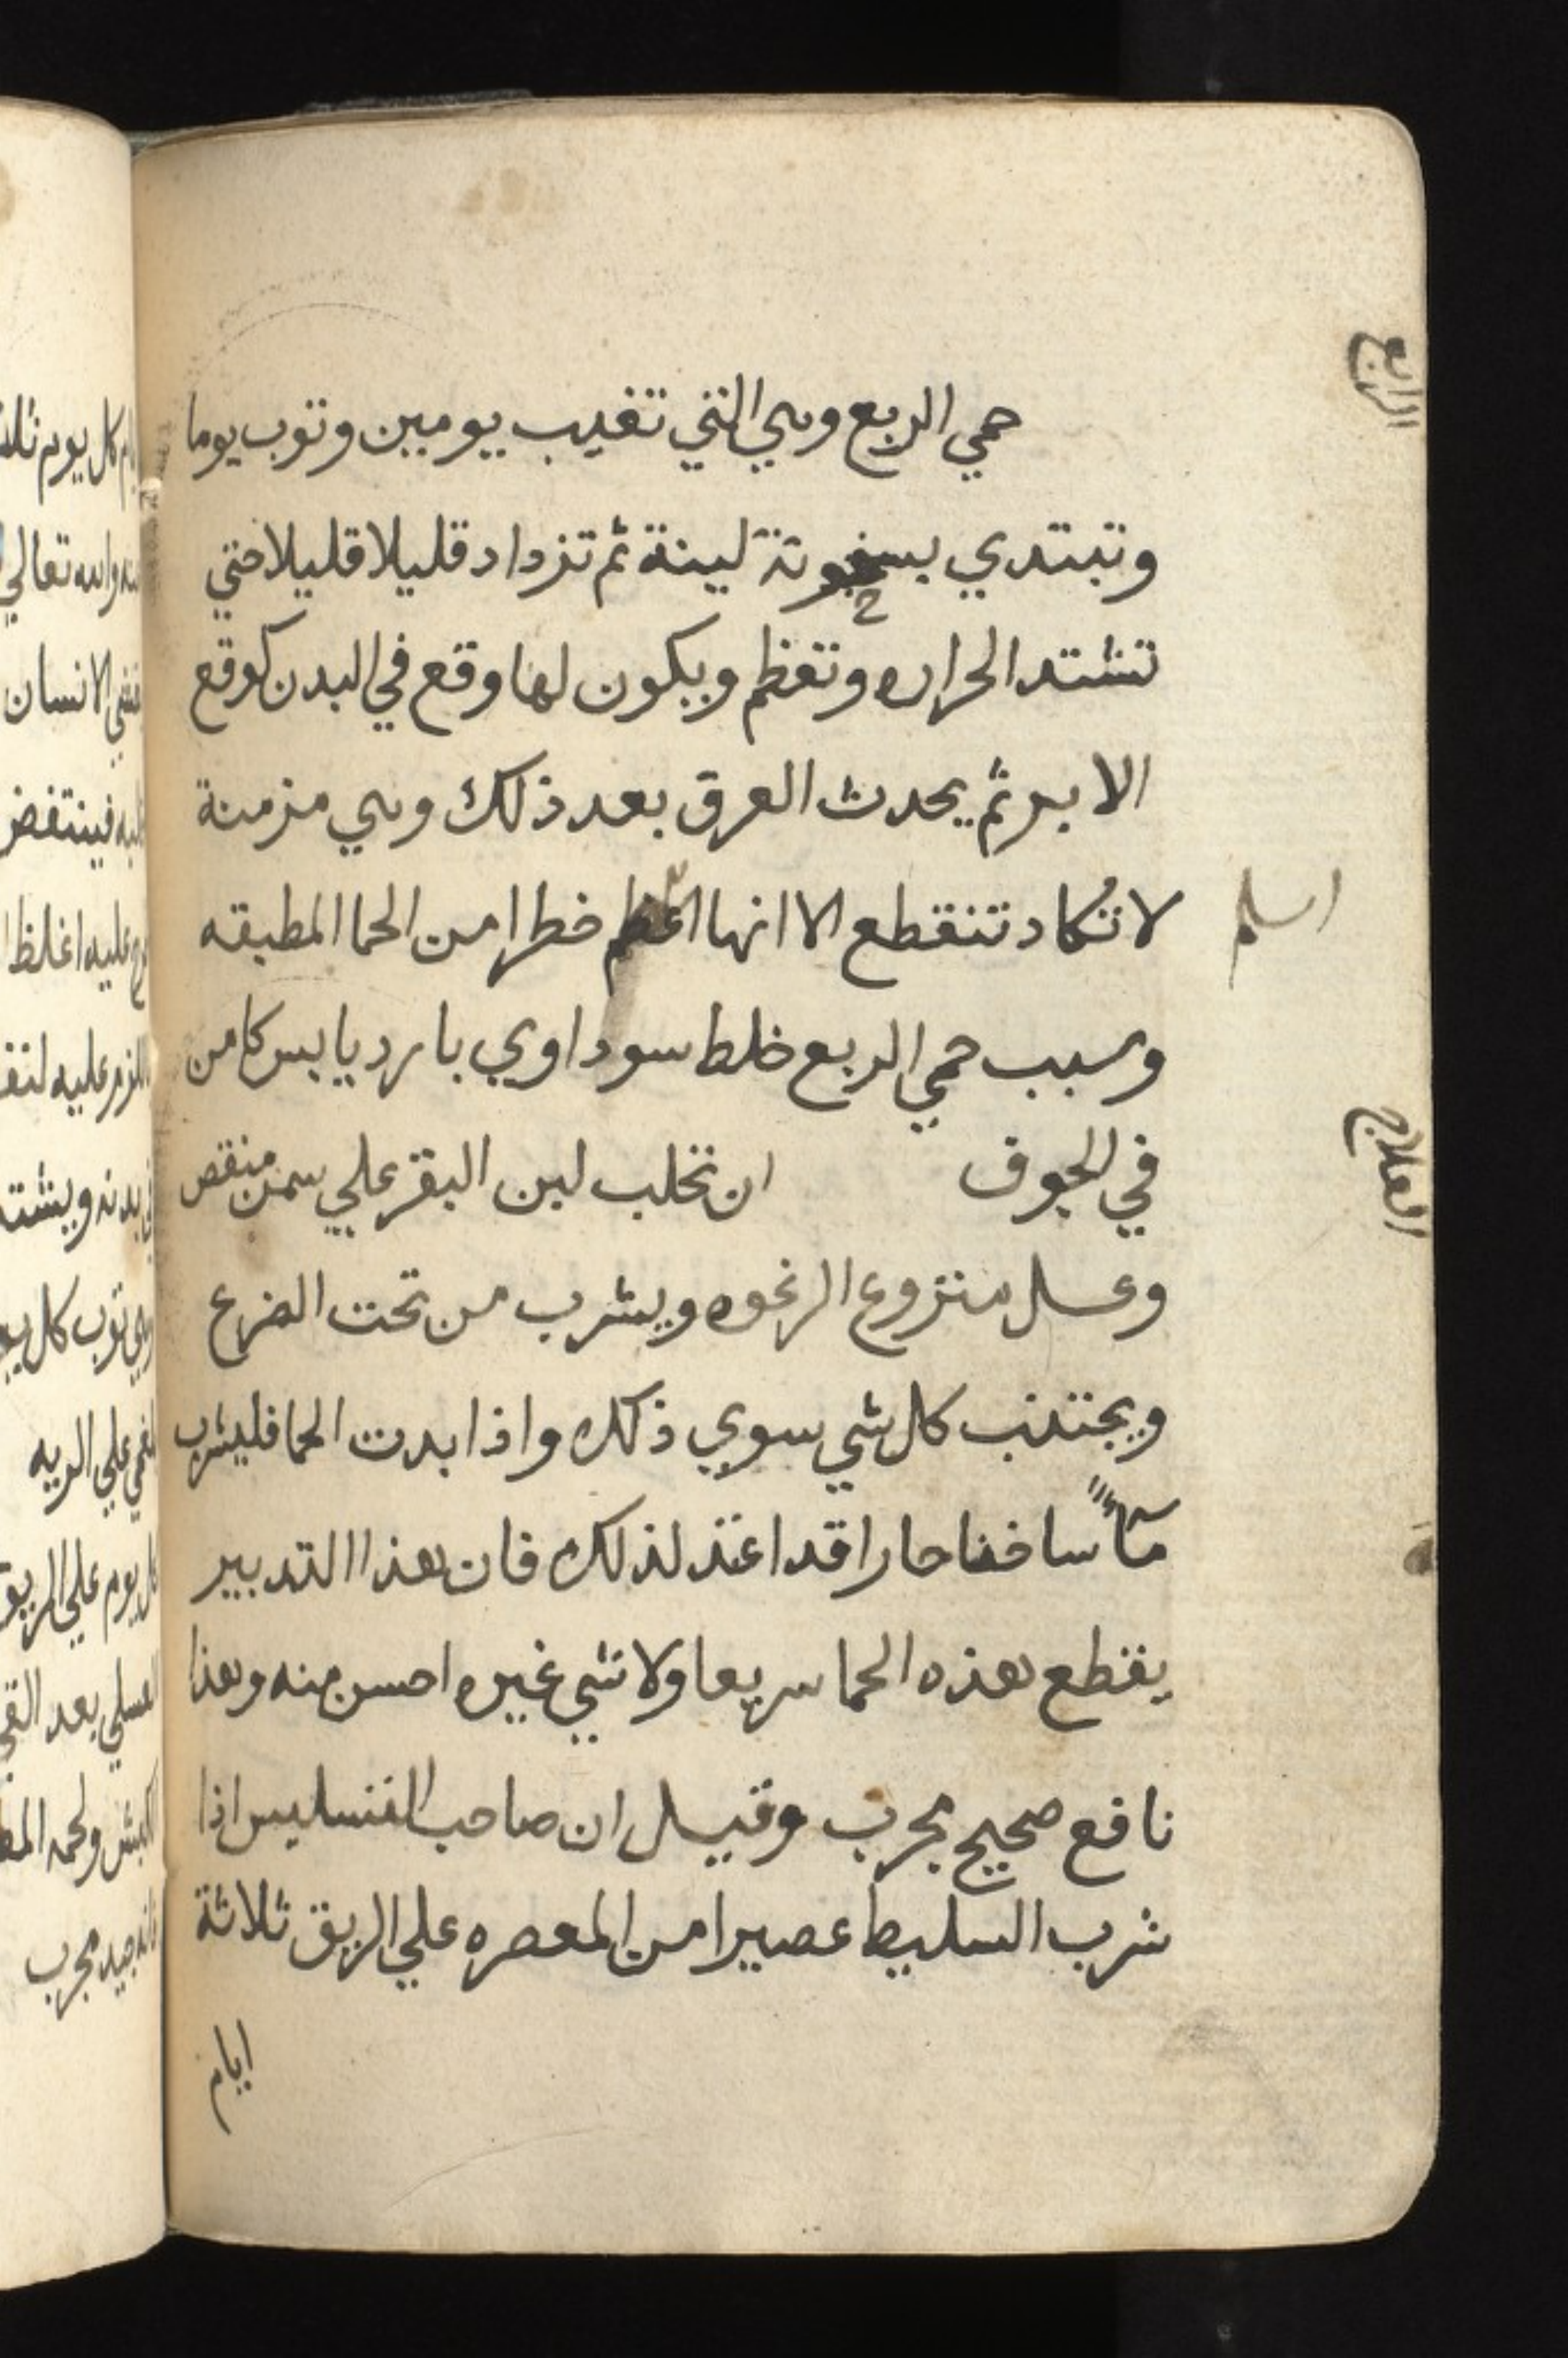 الرابع
حمي الربع وهي التي تغيب يومين وتوب يوما
وتبتدي بسخونة لينة ثم تزداد قليلا قليلا حتي
تشتد الحراره وتعظم ويكون لها وقع في البدن كوقع
الابر ثم يحدث العرق بعد ذلك وهي مزمنة
لا تكاد تنقطع الا انها اعظم خطرا من الحما المطبقه
اسلم
وسبب حمي الربع خلط سوداوي بارد يابس كامن
في الجوف ان تحلب لبن البقر علي سمن منقص
العلاج
وعسل منزوع الرغوه ويشرب من تحت الضرع
ويجتنب كل شي سوي ذلك واذا بدت الحما فليشرب
مآءً ساخنا حارا قد اعد لذلك فان هذا التدبير
يقطع هذه الحما سريعا ولا شي غيره احسن منه وهذا
نافع صحيح مجرب وقيل ان صاحب
اذا
شرب السليط عصيرا من المعصره علي الريق ثلاثة
ايام